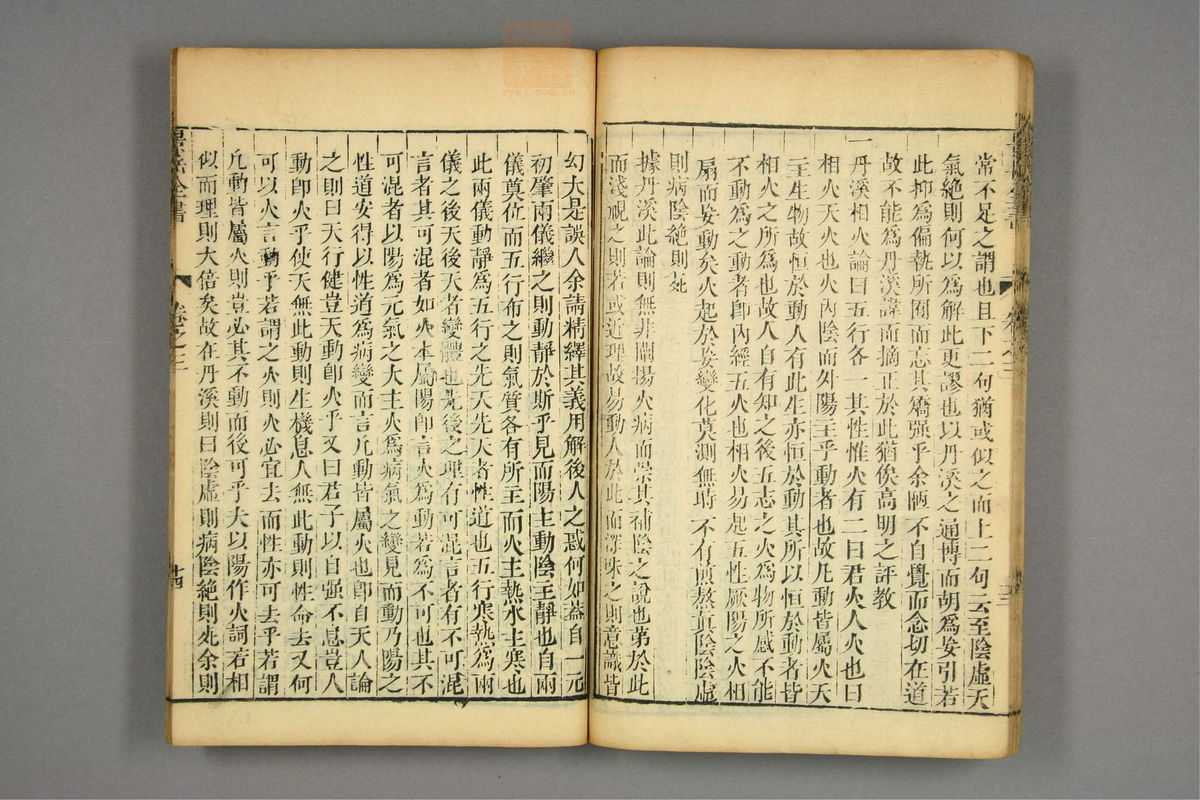 常不足之謂也且下二句猶或似之而上二句云至陰虛天
氣絕則何以為解此更謬也以丹溪之通博而胡為妄引若
此抑為偏執所囿而忘其矯强乎余陋不自覺而念切在道
故不能為丹溪諱而摘正於此猶俟高明之評教
一丹溪相火論曰五行各一其性惟火有二曰君火人火也曰
相火天火也火內陰而外陽主乎動者也故凡動皆屬火天
主生物故恒於動人有此生亦恒於動其所以恒於動者皆
相火之所為也故人自有知之後五志之火為物所感不能
不動為之動者卽內經五火也相火易起五性厥陽之火相
扇而妄動矣火起於妄變化莫測無時不有煎熬眞陰陰虛
則病陰絕則死
據丹溪此論則無非闡揚火病而崇其補陰之說也第於此
而淺視之則若或近理故易動人於此而深味之則意識皆
幻大是誤人余請精繹其義用解後人之惑何如蓋自一元
初肇兩儀繼之則動靜於斯乎見而陽主動陰主靜也自兩
儀奠位而五行布之則氣質各有所主而火主熱水主寒也
此兩儀動靜為五行之先天先天者性道也五行寒熱為兩
儀之後天後天者變體也先後之理有可混言者有不可混
言者其可混者如火本屬陽卽言火為動若為不可也其不
可混者以陽為元氣之大主火為病氣之變見而動乃陽之
性道安得以性道為病變而言凡動皆屬火也卽自天人論
之則曰天行健豈天動卽火乎又曰君子以自强不息豈人
動卽火乎使天無此動則生機息人無此動則性命去又何
可以火言動乎若謂之火則火必宜去而性亦可去乎若謂
凡動皆屬火則豈必其不動而後可乎夫以陽作火詞若相
似而理則大倍矣故在丹溪則曰陰虛則病陰絕則死余則
景岳全書
卷之三
廿四